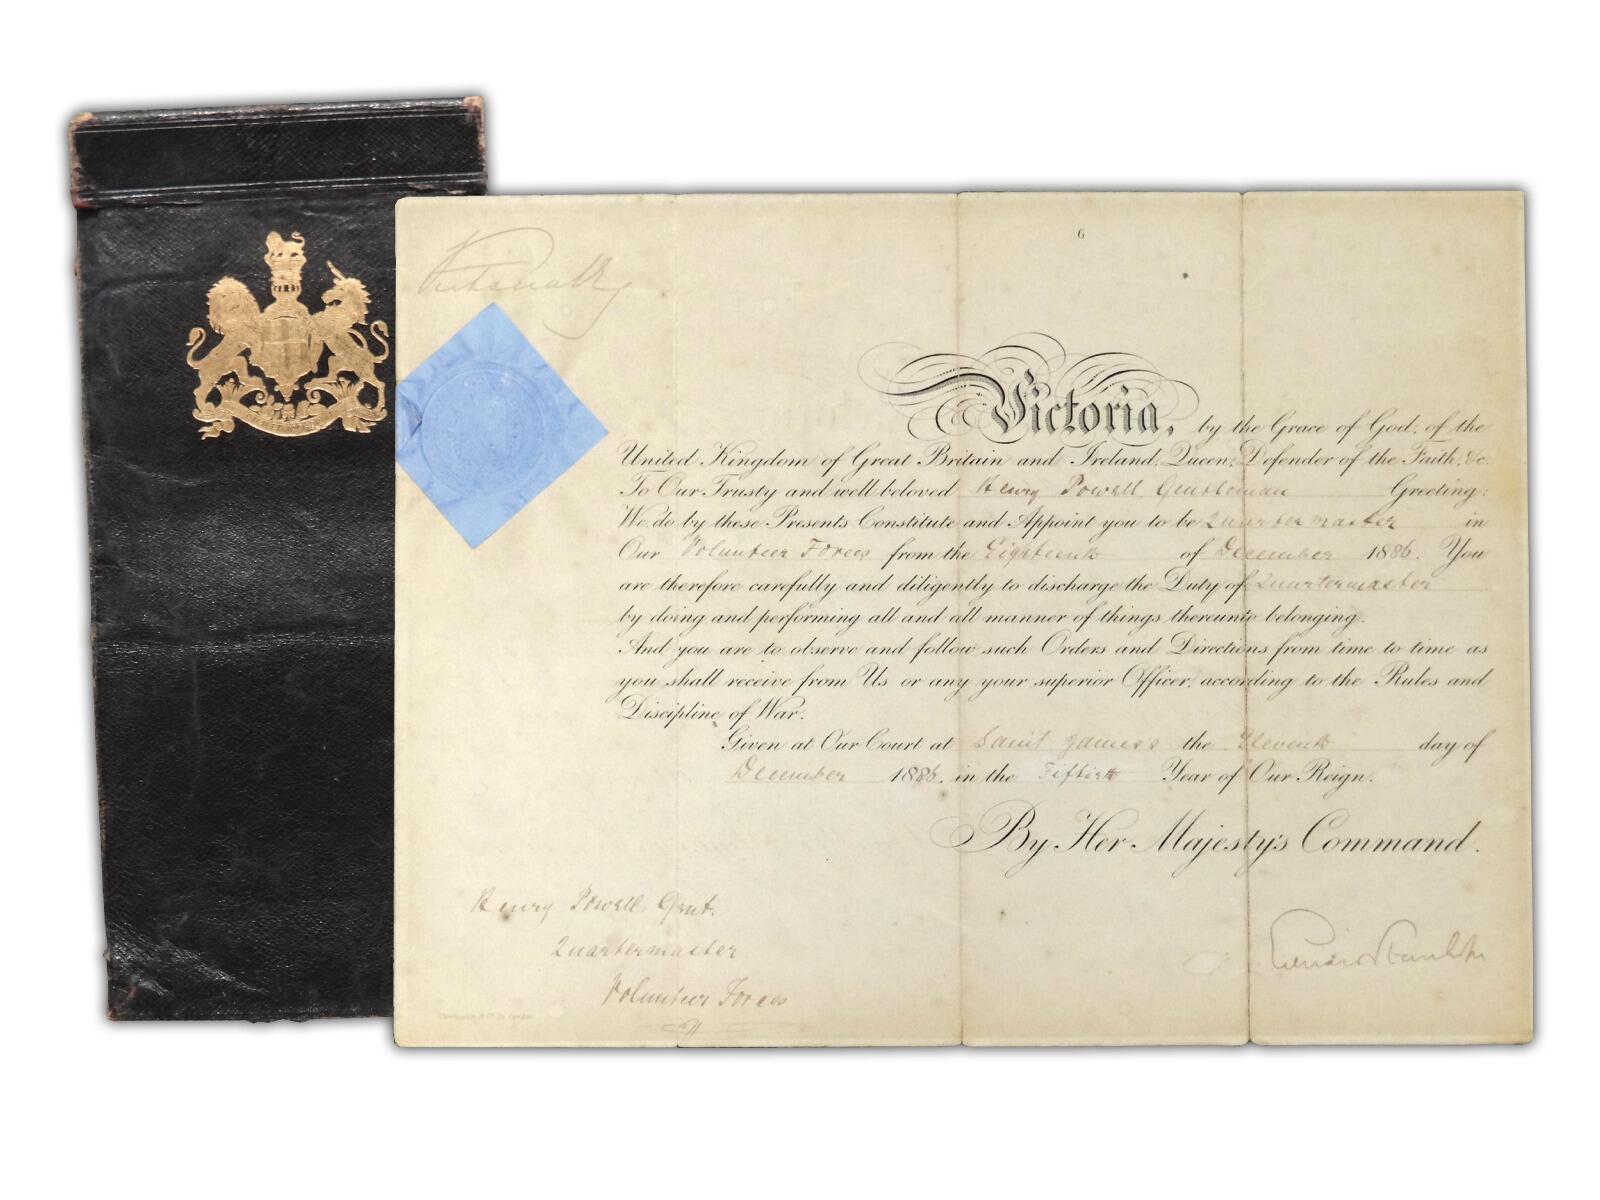 6
Victoria, by the Grace of God, of the
United Kingdom of Great Britain and Ireland, Queen, Defender of the Faith, &c.
To Our Trusty and well beloved Henry Powell Gentleman Greeting:
We do by these Presents Constitute and Appoint you to be Quartermaster in
Our Volunteer Forces from the Eighteenth of December 1886. You
are therefore carefully and diligently to discharge the Duty of Quartermaster
by doing and performing all and all manner of things thereunto belonging.
And you are to observe and follow such Orders and Directions from time to time as
you shall receive from Us or any your superior Officer, according to the Rules and
Discipline of War.
Given at Our Court at Saint James's the Eleventh day of
December 1886. in the Fiftieth Year of Our Reign.
By Her Majesty's Command.
Henry Powell. Gent.
Quartermaster
Volunteer Forces